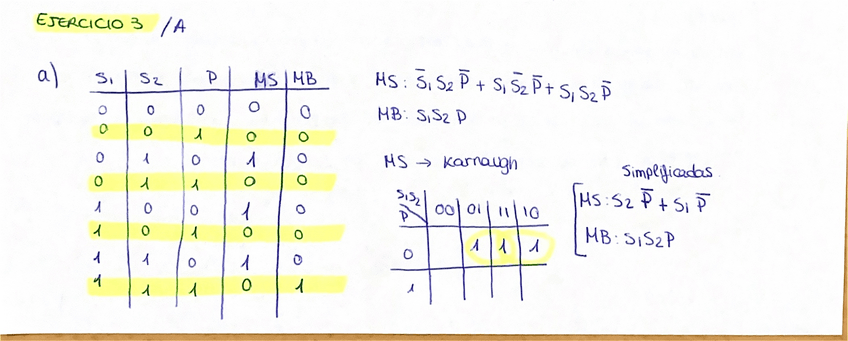 EJERCICIO 3 /A
a) S1 S2 P MS MB
0 0 0 0 0
0 0 1 0 0
0 1 0 1 0
0 1 1 0 0
1 0 0 1 0
1 0 1 0 0
1 1 0 1 0
1 1 1 0 1
MS: S̅1 S2 P̅ + S1 S̅2 P̅ + S1 S2 P̅
MB: S1 S2 P
MS → Karnaugh
S1S2 P 00 01 11 10
0 1 1 1
1
Simplificadas
MS: S2 P̅ + S1 P̅
MB: S1S2P